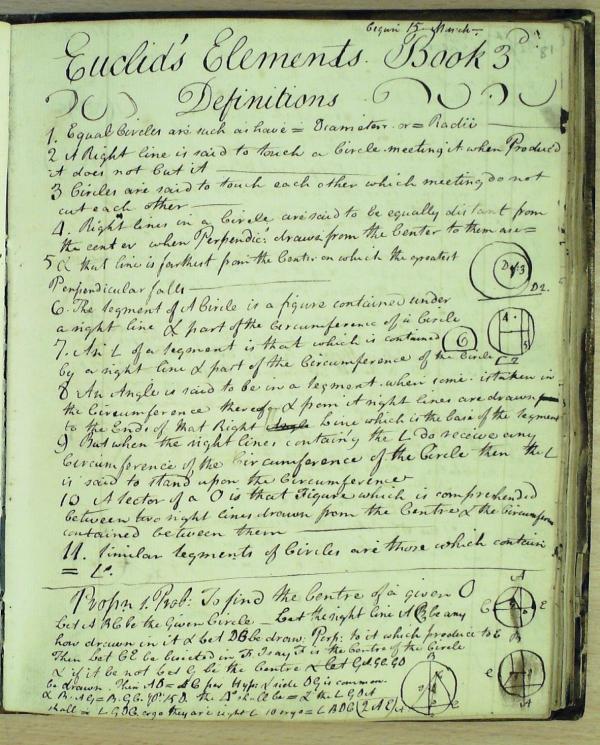 begun 15 March
Euclid's Elements. Book 3d.
Definitions
1. Equal Circles are such as have = Diameters or = Radii
2 A Right line is said to touch a Circle meeting it when Produced
it does not Cut it
3 Circles are said to touch each other which meeting do not
cut each other
4. Right lines in a Circle are said to be equally distant from
the center when Perpendic: drawn from the Center to them are =
5 & that line is farthest from the Center on which the greatest
Perpendicular falls
6. The Segment of A Circle is a figure contained under
a right line & part of the Circumference of a Circle
7. An L of a segment is that which is contained
by a right line & part of the Circumference of the Circle
8 An Angle is said to be in a Segment when some . is taken in
the Circumference thereof & from it right lines are drawn
to the Ends of that Right line which is the base of the segment
9 But when the right lines containg the L do receive any
Circumference of the Circumference of the Circle then the L
is said to stand upon the Circumference
10 A Sector of a O is that Figure which is comprehended
between two right lines drawn from the Centre & the Circumfern
contained between them
11. Similar Segments of Circles are those which contain
= Ls.
Propn 1. Prob: To find the Centre of a given O
Let A B C be the Given Circle – Let the right line A B be any
how drawn in it & Let DC be draw: Perp: to it which produce to E
Then Let CE be bisected in F I say F is the Centre of the Circle
& if it be not Let G be the Centre & Let GA GD GB
be drawn. Then AD = DB per Hyps & side DG is common